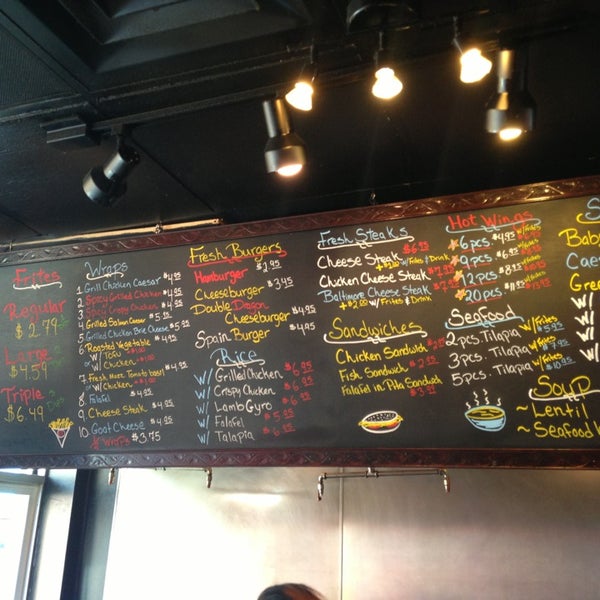 Frites
Regular
$2.79
Large
$4.59
Triple
$6.49
Wraps
1 Grill Chicken Caesar $4.95
2 Spicy Grilled Chicken $4.95
3 Spicy Crispy Chicken $4.95
4 Grilled Salmon Caesar $5.95
5 Grilled Chicken Brie Cheese $5.95
6 Roasted Vegetable $4.95
w/ Tofu
w/ Chicken
7 Fresh Mozz Tomato basil
w/ Chicken
8 Falafel $4.95
9 Cheese Steak $4.95
10 Goat Cheese $4.95
Wraps $3.75
Fresh Burgers
Hamburger $2.95
Cheeseburger $3.45
Double Dragon
Cheeseburger $4.95
Spain Burger $4.95
Rice
w/ Grilled Chicken $6.95
w/ Crispy Chicken $6.95
w/ Lamb Gyro $6.95
w/ Falafel $5.95
w/ Talapia $6.95
Fresh Steaks
Cheese Steak
+$2.00 w/ Frites & Drink
Chicken Cheese Steak
Baltimore Cheese Steak
+$2.00 w/ Frites & Drink
Sandwiches
Chicken Sandwich
Fish Sandwich
Falafel in Pita Sandwich
Hot Wings
6 pcs. $4.95 w/ Frites
9 pcs. w/ Frites
12 pcs. w/ Frites
20 pcs. w/ Frites
Seafood
2 pcs. Tilapia w/ Frites $5.95
3 pcs. Tilapia w/ Frites
5 pcs. Tilapia w/ Frites $10.95
S
Baby
Caes
Gree
w/
w/
w/
Soup
~ Lentil
~ Seafood